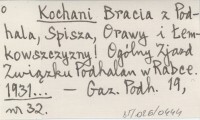 Kochani Bracia z Pod-
hala, Spisza, Orawy i Łem-
kowszczyzny! Ogólny Zjazd
Związku Podhalan w Rabce.
1931... — Gaz. Podh. 19,
nr 32.